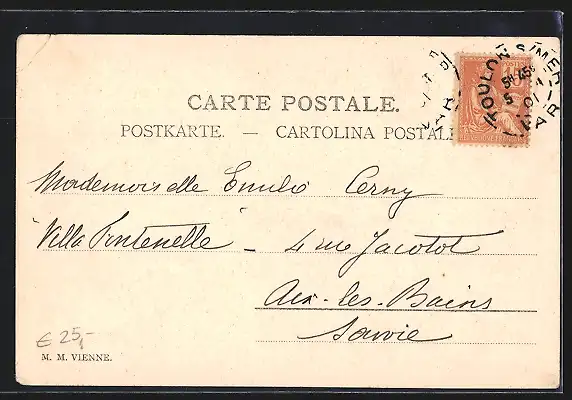 CARTE POSTALE.
POSTKARTE. — CARTOLINA POSTALE
TOULON S/MER
5 1
01
VAR
Mademoiselle Emilio Cerny
"Villa Fontenelle" – 4 rue Jacotot
Aix-les-Bains
Savoie
€ 25,-
M. M. VIENNE.